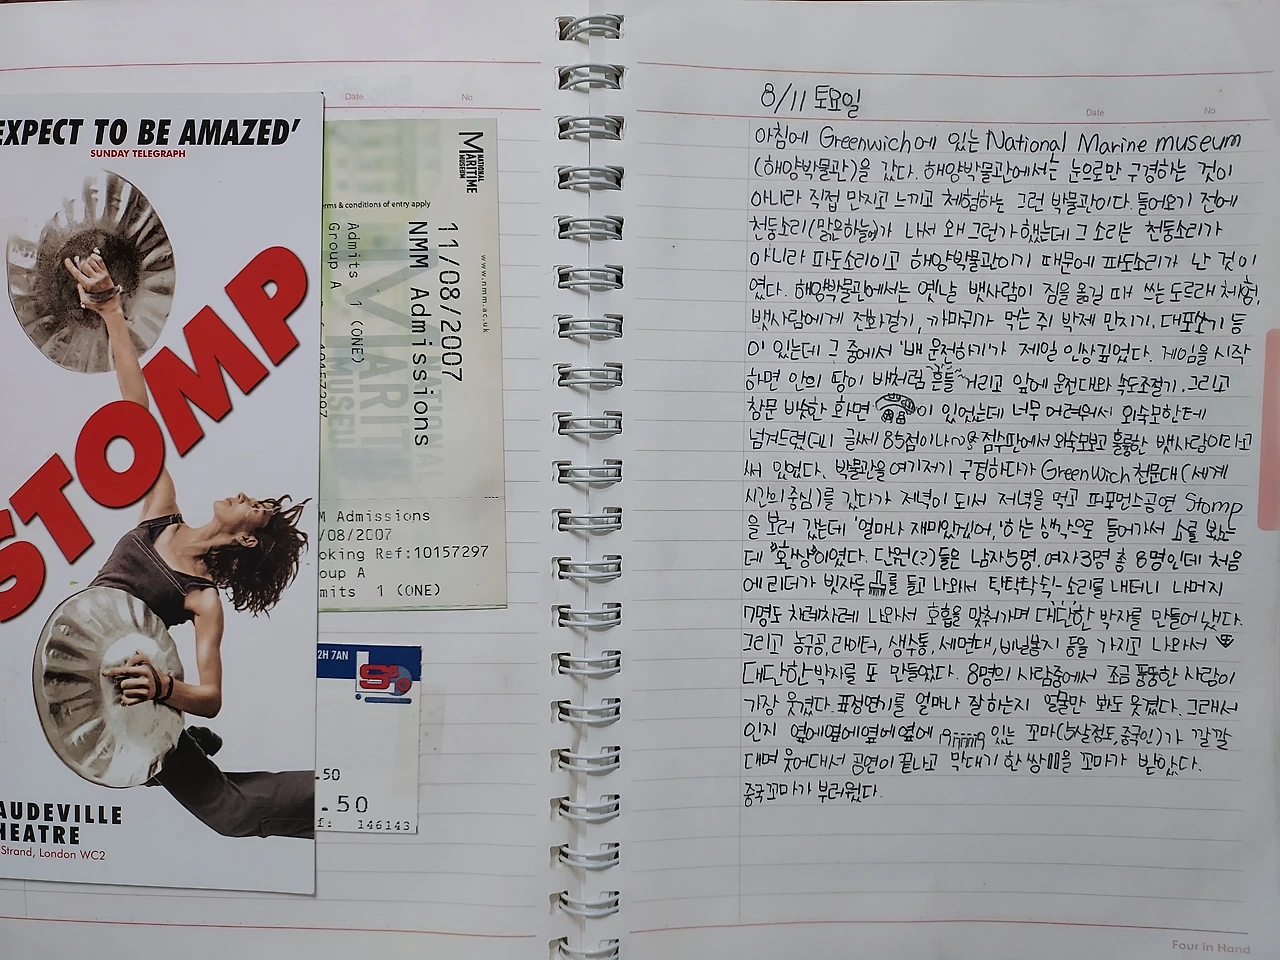 EXPECT TO BE AMAZED'
SUNDAY TELEGRAPH
STOMP
AUDEVILLE
HEATRE
Strand, London WC2
Date No
NATIONAL
MARITIME
MUSEUM
erms & conditions of entry apply
www.nmm.ac.uk
11/08/2007
NMM Admissions
Admits 1 (ONE)
Group A
M Admissions
/08/2007
oking Ref:10157297
oup A
mits 1 (ONE)
2H 7AN
.50
.50
f: 146143
8/11 토요일
Date No
아침에 Greenwich에 있는 National Marine museum
(해양박물관)을 갔다. 해양박물관에서는 눈으로만 구경하는 것이
아니라 직접 만지고 느끼고 체험하는 그런 박물관이다. 들어오기 전에
천둥소리(맑은하늘에)가 나서 왜 그런가했는데 그 소리는 천둥소리가
아니라 파도소리이고 해양박물관이기 때문에 파도소리가 난 것이
였다. 해양박물관에서는 옛날 뱃사람이 짐을 옮길 때 쓰는 도르래 체험,
뱃사람에게 전화걸기, 까마귀가 먹는 쥐 박제 만지기, 대포쏘기 등
이 있는데 그 중에서 '배 운전하기'가 제일 인상깊었다. 게임을 시작
하면 안의 땅이 배처럼 흔들~거리고 앞에 운전대와 속도조절기, 그리고
창문 비슷한 화면 이 있었는데 너무 어려워서 외숙모한테
넘겨드렸더니 글쎄 85점이나~ 점수판에서 외숙모보고 훌륭한 뱃사람이라고
써 있었다. 박물관을 여기저기 구경하다가 Greenwich 천문대(세계
시간의 중심)를 갔다가 저녁이 되서 저녁을 먹고 퍼포먼스공연 Stomp
을 보러 갔는데 '얼마나 재미있겠어,'하는 생각으로 들어가서 쇼를 봤는
데 "환상"이였다. 단원(?)들은 남자5명, 여자3명 총 8명인데 처음
에 리더가 빗자루 를 들고 나와서 탁탁탁 쉭- 소리를 내더니 나머지
7명도 차례차례 나와서 호흡을 맞춰가며 대단한 박자를 만들어 냈다.
그리고 농구공, 라이터, 생수통, 세면대, 비닐봉지 등을 가지고 나와서
대단한 박자를 또 만들었다. 8명의 사람중에서 조금 뚱뚱한 사람이
가장 웃겼다. 표정연기를 얼마나 잘 하는지 얼굴만 봐도 웃겼다. 그래서
인지 옆에옆에옆에옆에 있는 꼬마(5살정도, 중국인)가 깔깔
대며 웃어대서 공연이 끝나고 막대기 한 쌍 을 꼬마가 받았다.
중국꼬마가 부러웠다.
Four in Hand